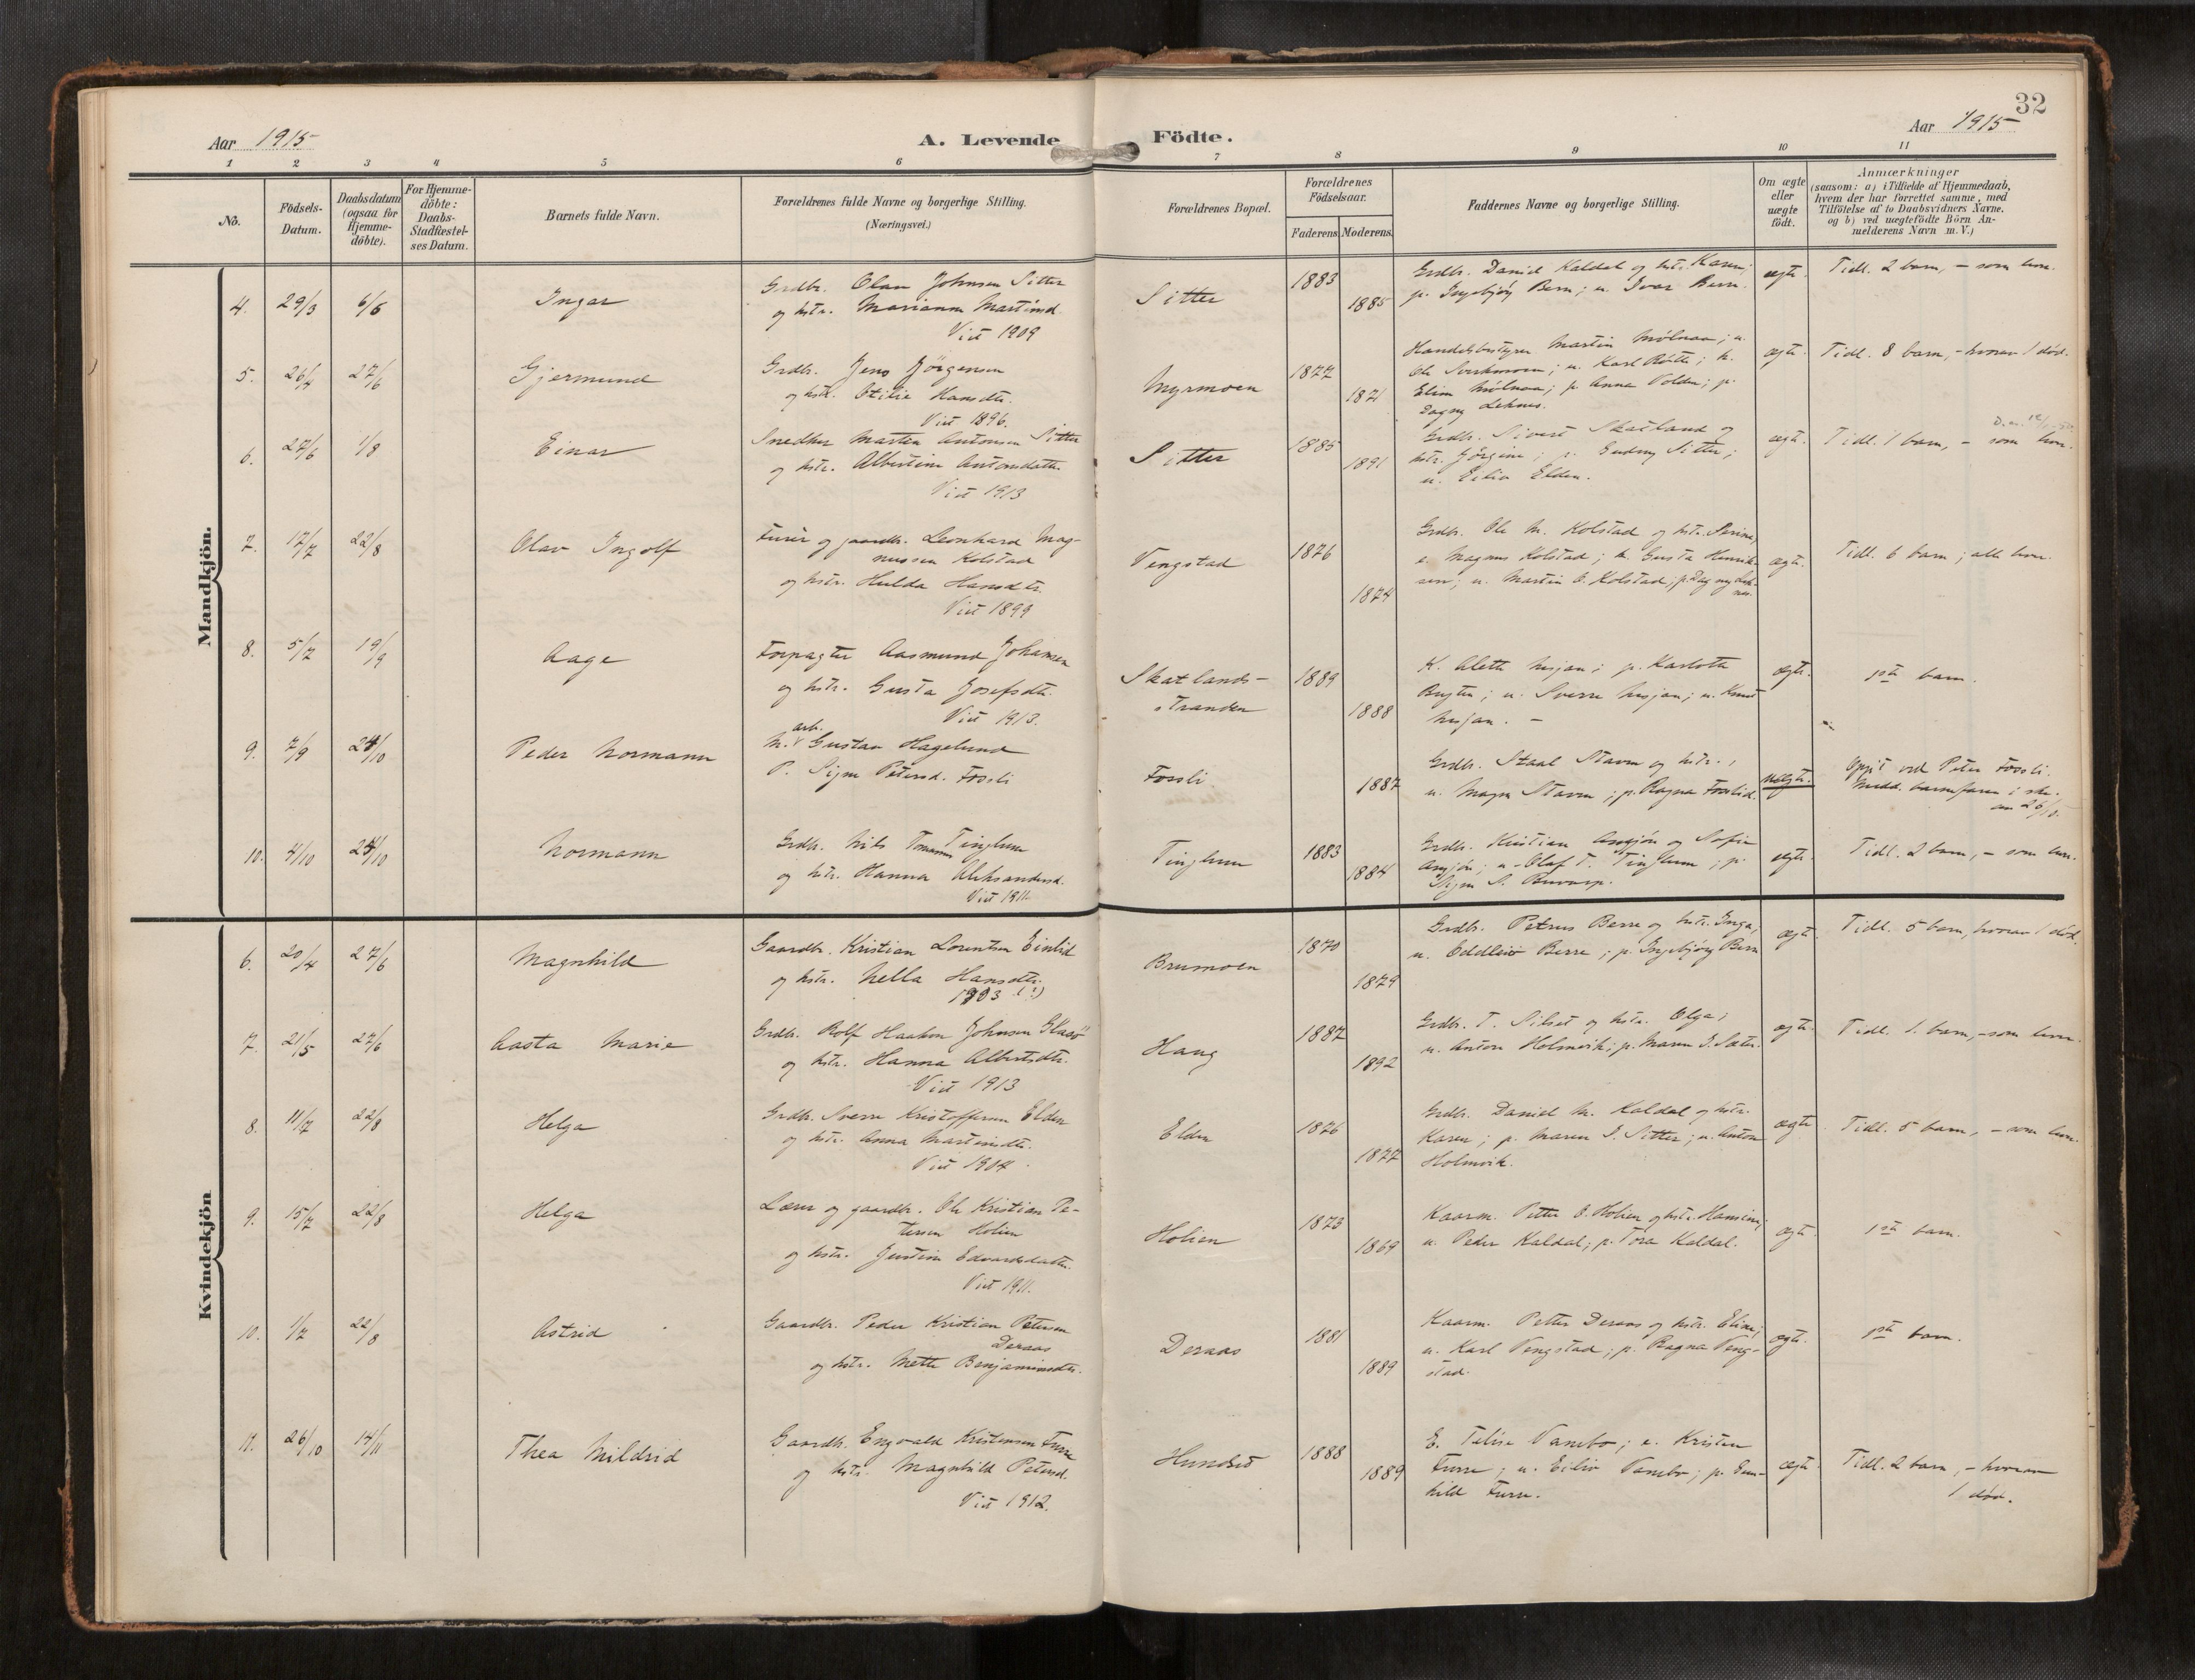 32
Aar 1915
A. Levende Födte.
Aar 1915
1 2 3 4 5 6 7 8 9 10 11
No.
Födsels-
Datum.
Daabsdatum
(ogsaa for
Hjemme-
döbte).
For Hjemme-
döbte:
Daabs-
Stadfæstel-
ses Datum.
Barnets fulde Navn.
Forældrenes fulde Navne og borgerlige Stilling.
(Næringsvei.)
Forældrenes Bopæl.
Forældrenes
Födselsaar.
Faderens.
Moderens.
Faddernes Navne og borgerlige Stilling.
Om ægte
eller
uægte
födt.
Anmærkninger
(saasom: a) i Tilfælde af Hjemmedaab,
hvem der har forrettet samme, med
Tilföielse af to Daabsvidners Navne,
og b) ved uægtefödte Börn An-
melderens Navn m. V.)
Mandkjön.
4. 29/3 6/6 Ingar
Grdbr. Olav Johnsen Sitter
og hstr. Marianna Martinsd.
Viet 1909
Sitter 1883 1885
Grdbr. Daniel Kaldal og hstr. Karen;
p. Ingebjörg Berre; u. Ivar Berre.
ægte. Tidl. 2 barn, – som leve.
5. 26/4 27/6 Gjermund
Grdbr. Jens Jörgensen
og hstr. Otilie Hansdtr.
Viet 1896.
Myrmoen 1877 1871
Handelsbestyrer Martin Mölnaa; u.
Karl Röitte; k.
Elise Mölnaa; p. Anna Volden; p.
Dagny Leknes.
ægte. Tidl. 8 barn, – hvorav 1 död.
6. 27/6 1/8 Einar
Snedker Marten Antonsen Sitter
og hstr. Albertine Antonsdatter
Viet 1913
Sitter 1885 1891
Grdbr. Sivert Skatland og
hstr. Jörgine; p. Gudny Sitter;
u. Eilia Elden.
ægte. Tidl. 1 barn, – som leve.
7. 17/7 22/8 Olav Ingolf
Furer og gaardb. Leonhard Mag-
nussen Kolstad
og hstr. Hulda Hansdtr.
Viet 1899
Vengstad 1876 1874
Grdbr. Ole M. Kolstad og hstr. Serine,
e. Magnus Kolstad; k. Gusta Henrik-
sen; u. Martin O. Kolstad; p. Dagny Lek-
nes.
ægte. Tidl. 6 barn; alle leve.
8. 5/7 19/9 Aage
Forpagter Aasmund Johansen
og hstr. Gusta Josefsdtr.
Viet 1913.
Skatlands-
stranden 1889 1888
K. Aleth Mosjøn; p. Karlotte
u. Sverre u. Knut
ægte. 1ste barn.
9. 7/9 24/10 Peder Normann
arb.
M. Gustav Hagelund
P. Signe Petersd. Fossli
Fossli 1887
Grdbr. Staal Stavrn og hstr.;
u. Magn Stavrn; p. Ragna Fosslid.
uægte. Opgit ved Peter Fossli.
10. 4/10 24/10 Normann
Grdbr. Nils Tomassen Tinglum
og hstr. Hanna Aleksandersd.
Viet 1911
Tinglum 1883 1884
Grdbr. Kristian Amsjön og Sofie
Amsjön; u. Olaf T. Tinglum; p.
ægte. Tidl. 2 barn, – som leve.
Kvindekjön
6. 20/4 27/6 Magnhild
Gaardbr. Kristian Lorentsen Einlid
og hstr. Nella Hansdtr.
1903 (?)
Brumoen 1870 1879
Grdbr. Petrus Berre og hstr. Inga,
u. Oddleiv Berre; p. Ingebjörg Berre
ægte. Tidl. 5 barn, hvorav 1 död.
7. 21/5 27/6 Aasta Marie
Grdbr. Rolf Haakon Johnsen Glasö
og hstr. Hanna Albertsdtr.
Viet 1913
Haug 1887 1892
Grdbr. T. Silset og hstr. Olga;
u. Anton Holmvik; p. Maren J. Sitter.
ægte. Tidl. 1. barn, – som leve.
8. 11/7 22/8 Helga
Grdbr. Sverre Kristoffersen Elden
og hstr. Anna Martinsdtr.
Viet 1904.
Elden 1876 1877
Grdbr. Daniel M. Kaldal og hstr.
Karen; p. Maren J. Sitter; u. Anton
Holmvik.
ægte. Tidl. 5 barn, – som leve.
9. 15/7 22/8 Helga
Lærer og gaardbr. Ole Kristian Pe-
tersen Holien
og hstr. Justine Edvardsdatter.
Viet 1911.
Holien 1873 1869
Kaarm. Petter O. Holien og hstr. Hansine;
u. Peder Kaldal; p. Tora Kaldal.
ægte. 1ste barn.
10. 1/7 22/8 Astrid
Gaardbr. Peder Kristian Petersen
Deraas
og hstr. Mette Benjaminsdtr.
Deraas 1881 1889
Kaarm. Petter Deraas og hstr. Eline;
u. Karl Vengstad; p. Ragna Veng-
stad.
ægte. 1ste barn.
11. 26/10 14/11 Thea Mildrid
Gaardbr. Engvald Kristensen Furre
og hstr. Magnhild Petersd.
Viet 1912.
Hundseid 1888 1889
E. Telise Vanebo; e. Kristen
Furre; u. Eiliv Vanebo; p. Gun-
hild Furre.
ægte. Tidl. 2 barn, – hvorav
1 död.